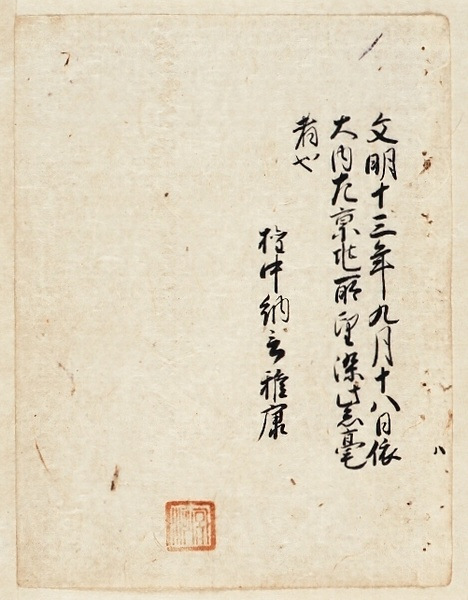 文明十三年九月十八日依
大内左京兆所望染紫毫
者也
権中納言雅康